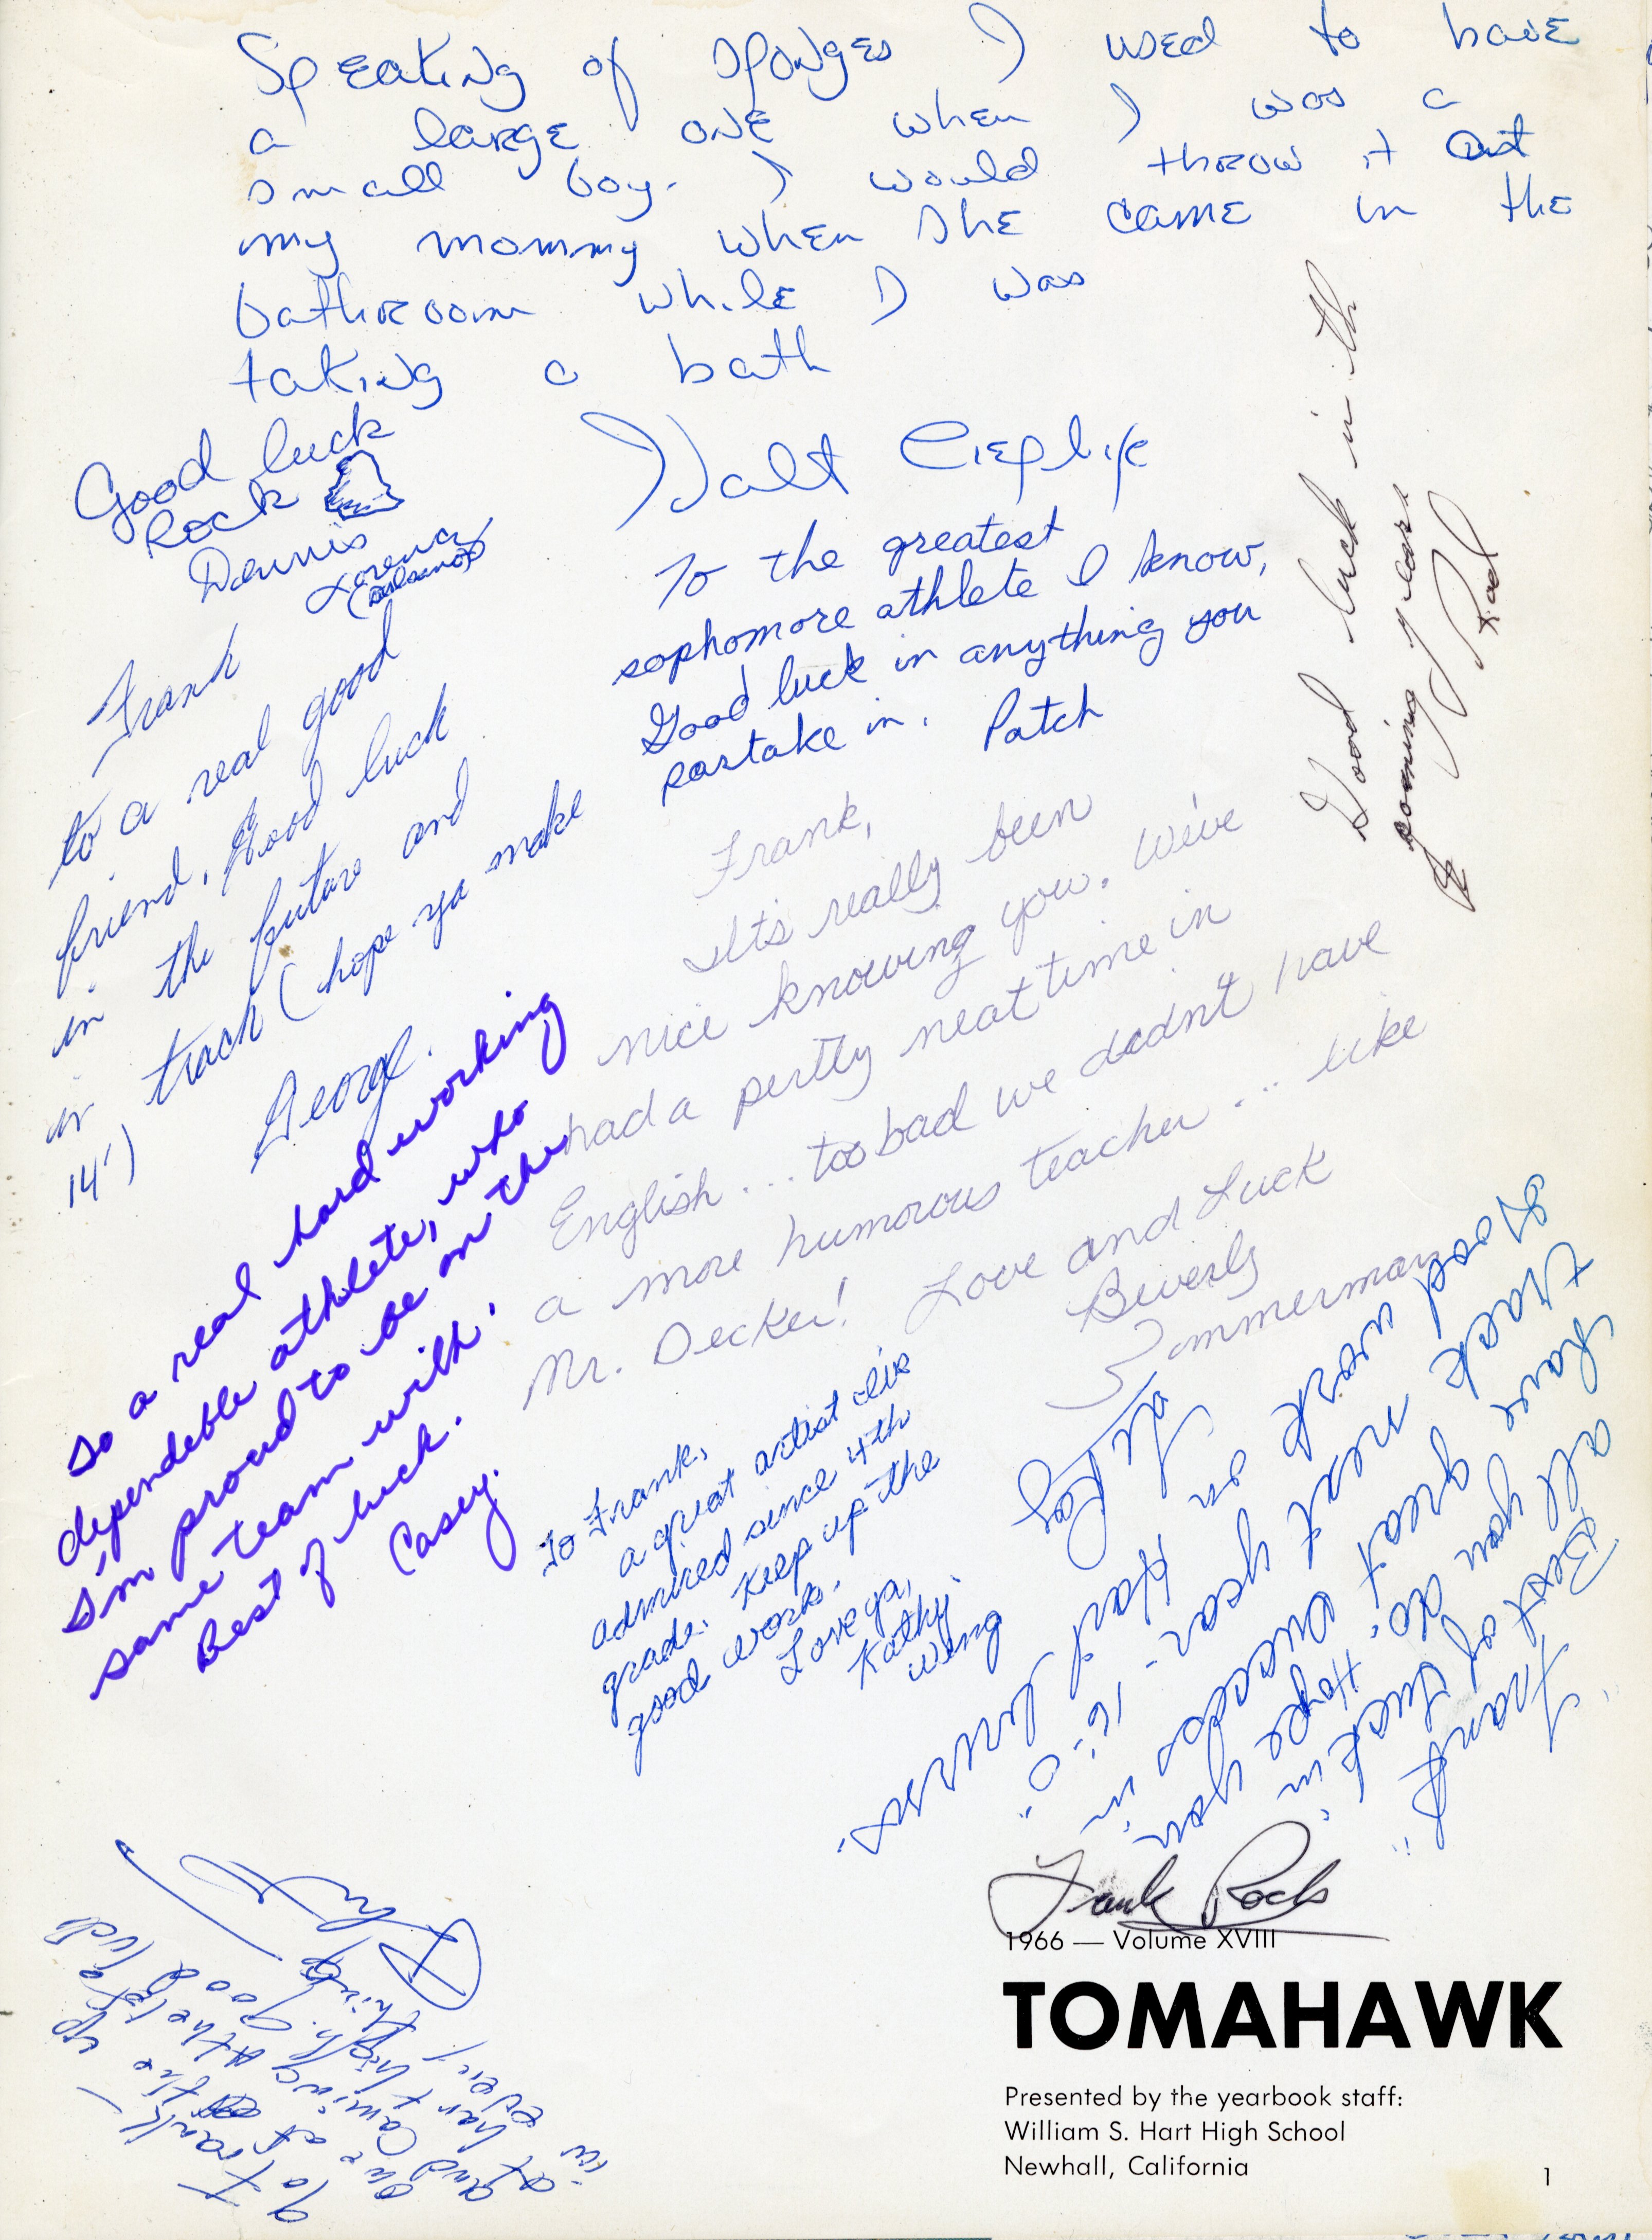 Speaking of sponges I used to have
a large one when I was a
small boy. I would throw it at
my mommy when she came in the
bathroom while I was
taking a bath
Walt Cieplik
Good luck
Rock
Dennis
Good luck in th
coming years
Rod
To the greatest
sophomore athlete I know,
Good luck in anything you
partake in. Patch
Frank
to a real good
friend. Good luck
in the future and
in track (hope ya make
14')
George.
Frank,
It's really been
nice knowing you. We've
had a pertty neat time in
English... too bad we dadn't have
a more humorous teacher... like
Mr. Decker! Love and Luck
Beverly
Zimmerman
So a real hard working
dependeble athlete, who
I'm proud to be on the
same team with.
Best of luck.
Casey.
To Frank,
a great artist
admired since 4th
grade. Keep up the
good work.
Love ya,
Kathy
Wing
"Frank"
Best of Luck in
all you do. Hope you
have great success in
track next year - 16'-0"
Good work on Hart
To Frank -
One of the up
and coming Athlete
at hart high. good luck
in every thing
Frank Rock
1966 — Volume XVIII
TOMAHAWK
Presented by the yearbook staff:
William S. Hart High School
Newhall, California
1